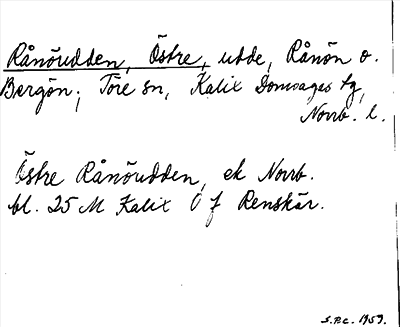 Rånöudden, Östre, udde, Rånön o.
Bergön; Töre sn, Kalix Domsagas tg,
Norrb. l.
Östre Rånöudden, ek Norrb.
bl. 25 M Kalix Ö f Renskär.
S.P.C. 1959.